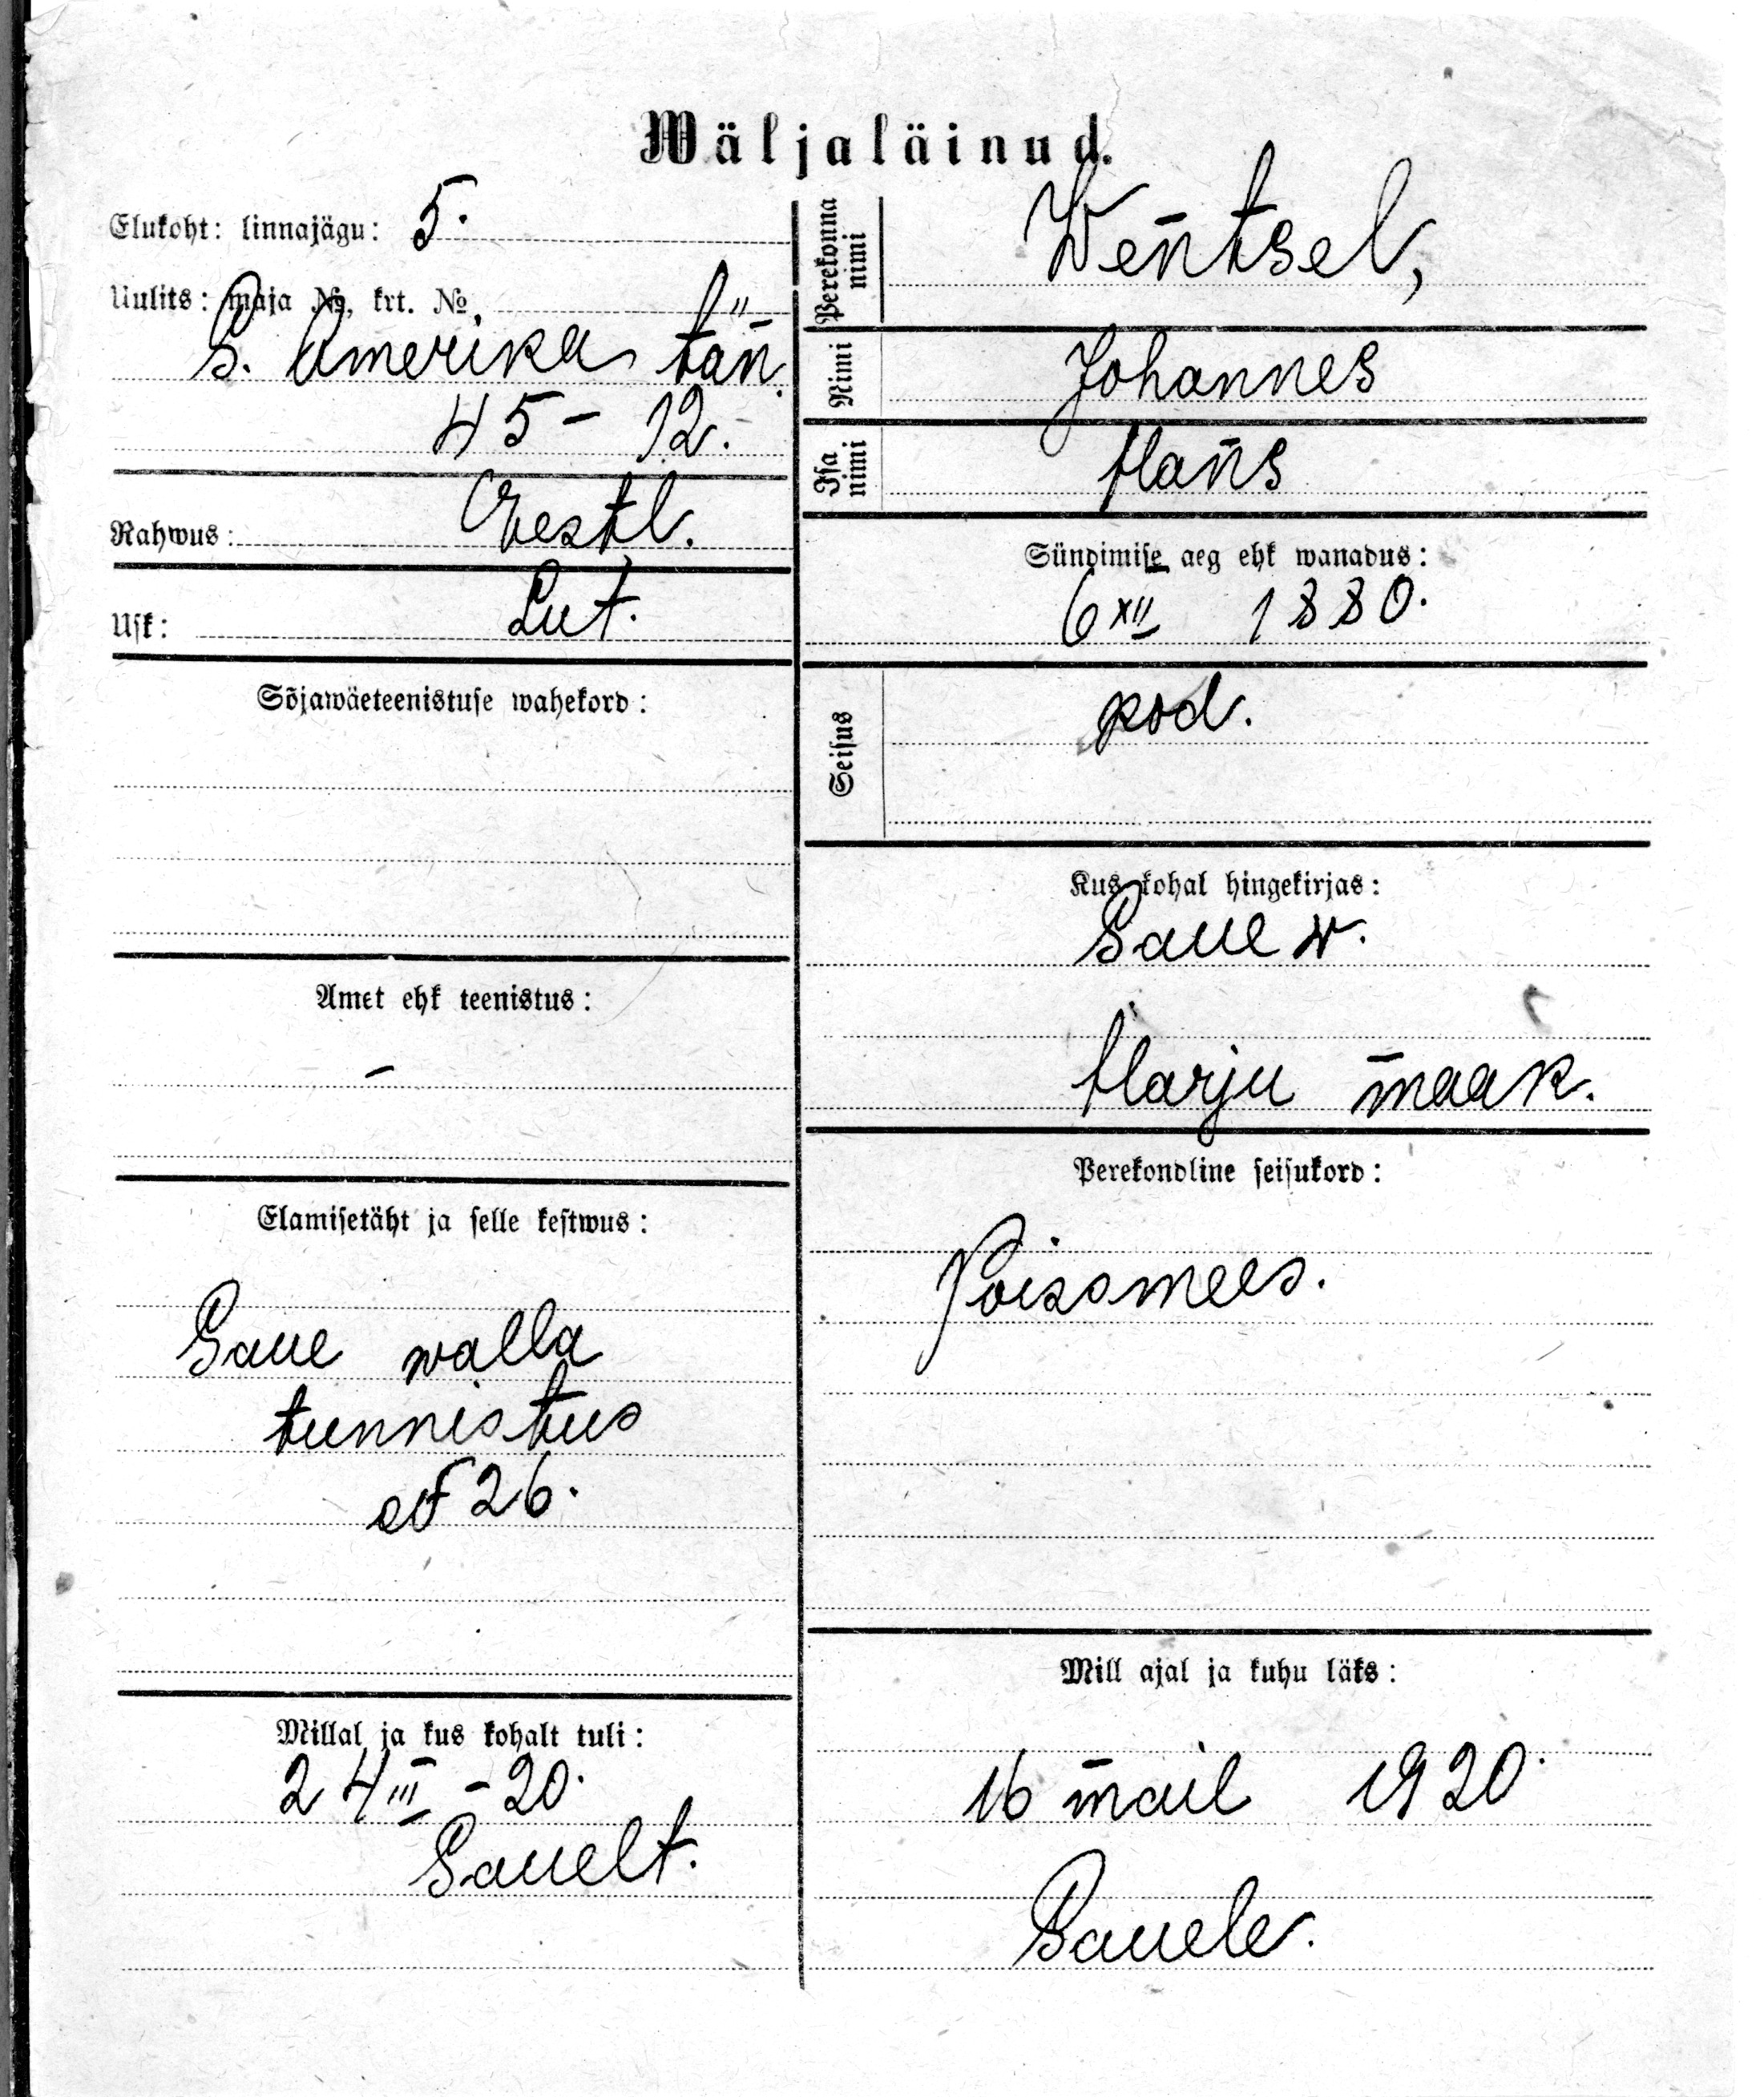 Wäljaläinud.
Elukoht: linnajägu: 5.
Uulits: maja №, krt. №
S. Amerika tän.
45 - 12.
Rahwus: Eestl.
Usk: Lut.
Sõjawäeteenistuse wahekord:
Amet ehk teenistus:
-
Elamisetäht ja selle kestwus:
Saue walla
tunnistus
№ 26.
Millal ja kus kohalt tuli:
24 III - 20.
Sauelt.
Perekonna nimi Wentsel,
Nimi Johannes
Isa nimi Hans
Sündimise aeg ehk wanadus:
6 XII 1880.
Seisus kod.
Kus kohal hingekirjas:
Saue w.
Harju maak.
Perekondline seisukord:
Poissmees.
Mill ajal ja kuhu läks:
16 mail 1920.
Sauele.